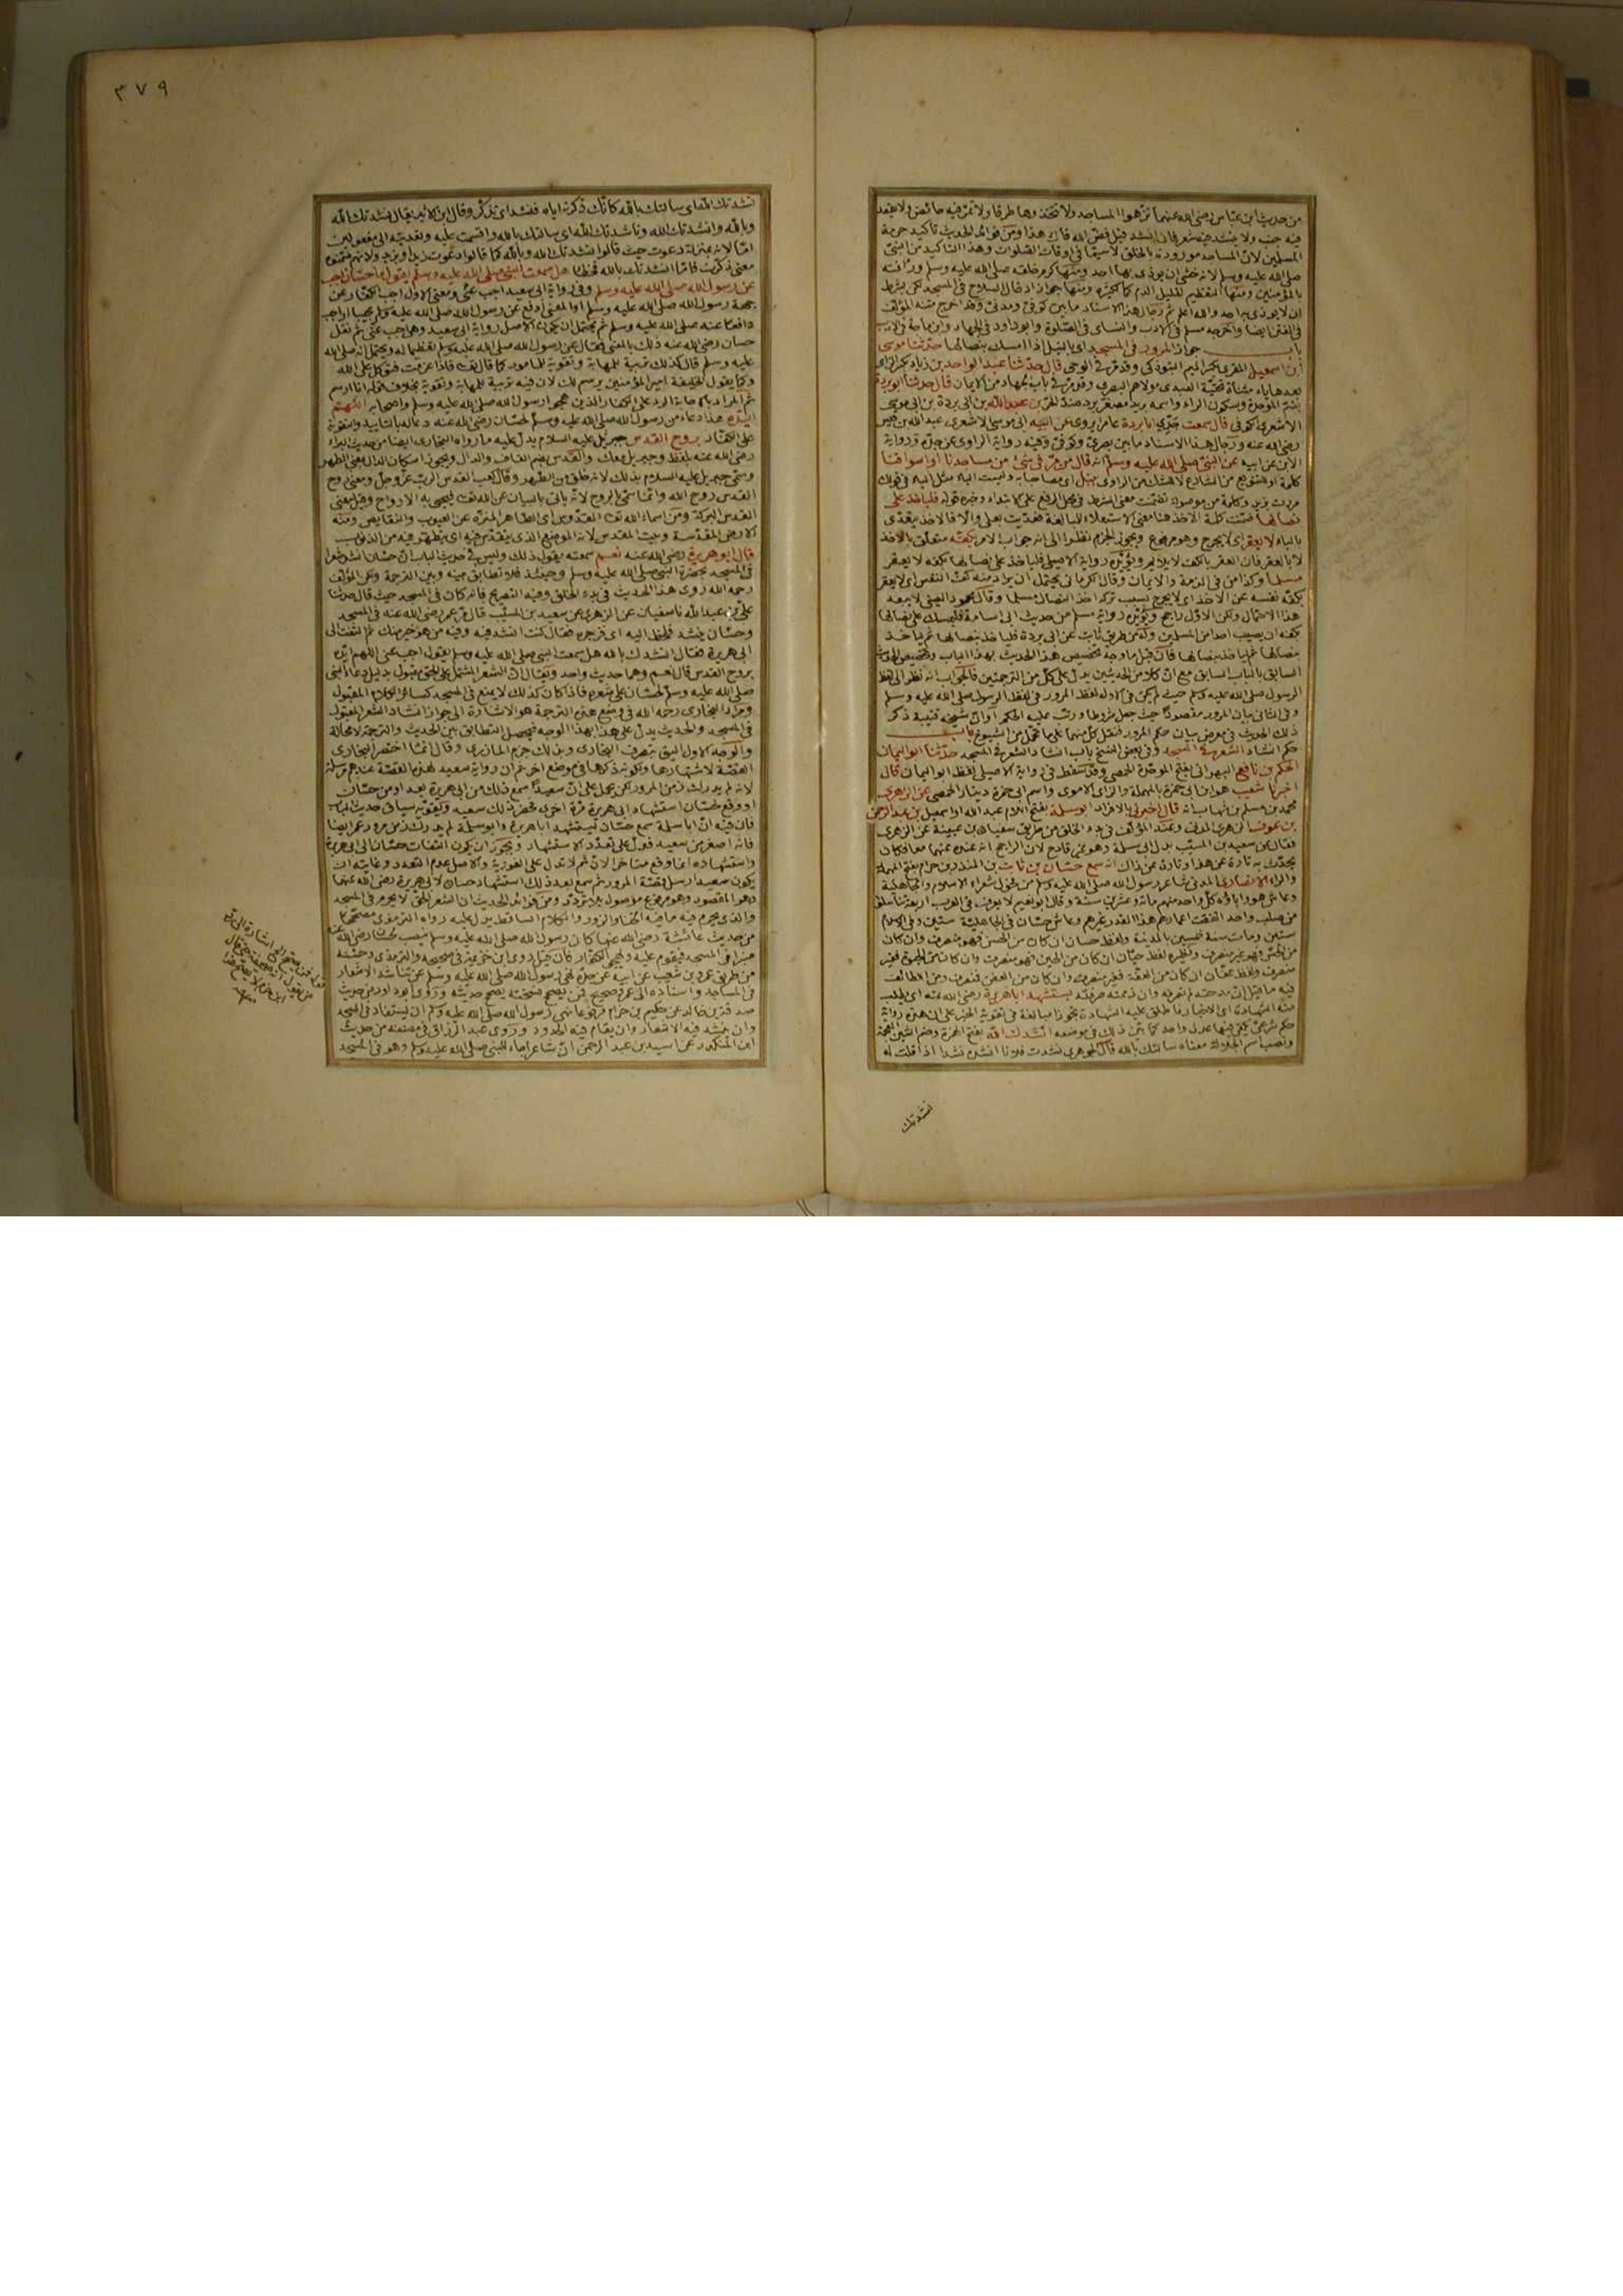 من حديث ابن عباس رضى الله عنهما نزهوا المساجد ولا تتخذوها طرقا ولا تمر فيه حائض ولا يقعد
فيه جنب ولا ينشد فيه شعر فان انشد فقل فض الله فاك هذا ومن فوائد الحديث تأكيد حرمة
المسلمين لان المساجد مورودة بالخلق لاسيما فى اوقات الصلوات وهذا التأكيد من النبى
صلى الله عليه وسلم لانه خشى ان يؤذى بها احد ومنها كرم خلقه صلى الله عليه وسلم ورأفته
بالمؤمنين ومنها التعظيم لقليل الدم كما كثيره ومنها جواز ادخال السلاح فى المسجد لكن بشرط
ان لا يؤذى به احد والله اعلم ثم رجال هذا الاسناد ما بين كوفى ومدنى وقد اخرج متنه المؤلف
فى الفتن ايضا واخرجه مسلم فى الادب والنسائى فى الصلوة وابو داود فى الجهاد وابن ماجة فى الادب
باب جواز المرور فى المسجد اى بالنبل اذا امسك بنصالها حدثنا موسى
ابن اسمعيل المقرى بكسر الميم التبوذكى وقد مر فى الوحى قال حدثنا عبد الواحد بن زياد بكسر الزاى
بعدها ياء مثناة تحتية العبدى مولاهم البصرى وقد مر فى باب الجهاد من الايمان قال حدثنا ابو بردة
بضم الموحدة وسكون الراء واسمه بريد مصغر برد ضد الحر بن عبد الله بن ابى بردة بن ابى موسى
الاشعرى الكوفى قال سمعت جدى ابا بردة عامرا يروى عن ابيه ابى موسى الاشعرى عبد الله بن قيس
رضى الله عنه ورجال هذا الاسناد ما بين بصرى وكوفى وفيه رواية الراوى عن جده ورواية
الابن عن ابيه عن النبى صلى الله عليه وسلم انه قال من مر فى شئ من مساجدنا او اسواقنا
كلمة او للتنويع من الشارع لا للشك من الراوى بنبل اى مصاحبا به وليست الباء مثل الباء فى قولك
مررت بزيد وكلمة من موصولة تضمنت معنى الشرط فى محل الرفع على الابتداء وخبره قوله فليأخذ على
نصالها ضمنت كلمة الاخذ هنا معنى الاستعلاء للمبالغة فعديت بعلى والا فالاخذ يتعدى
بالباء لا يعقر اى لا يجرح وهو مرفوع ويجوز الجزم نظرا الى انه جواب الامر بكفه متعلق بالاخذ
لا بالعقر فان العقر بالكف لا يلايم ويؤيده رواية الاصيلى فليأخذ على نصالها بكفه لا يعقر
مسلما وكذا من فى الذمة والايمان وقال الكرمانى يحتمل ان يراد منه كف النفس اى لا يعقر
بكفه نفسه عن الاخذ اى لا يجرح بسبب تركه اخذ النصال مسلما وقال محمود العينى لا يبعد
هذا الاحتمال ولكن الاول راجح ويؤيده رواية مسلم من حديث ابى اسامة فليمسك على نصالها
بكفه ان يصيب احدا من المسلمين وله من طريق ثابت عن ابى بردة فليأخذ بنصالها ثم يأخذ
بنصالها ثم يأخذ بنصالها فان قيل ما وجه تخصيص هذا الحديث بهذا الباب وتخصيص الحديث
السابق بالباب السابق مع ان كلا من الحديثين يدل على كل من الترجمتين فالجواب انه نظر الى لفظ
الرسول صلى الله عليه وسلم حيث لم يكن فى الاول لفظ المرور فى لفظ الرسول صلى الله عليه وسلم
وفى الثانى بيان المرور مقصودا حيث جعل شرطا ورتب عليه الحكم او ان شيخه قتيبة ذكر
ذلك الحديث فى معرض بيان حكم المرور فنقل كل منهما على ما تحمل من الشيوخ باب
حكم انشاد الشعر فى المسجد وفى بعض النسخ باب انشاد الشعر فى المسجد حدثنا ابو اليمان
الحكم بن نافع البهرانى بفتح الموحدة الحمصى وقد سقط فى رواية الاصيلى لفظ ابو اليمان قال
اخبرنا شعيب هو ابن ابى حمزة بالمهملة والزاى الاموى واسم ابى حمزة دينار الحمصى عن الزهرى
محمد بن مسلم بن شهاب انه قال اخبرنى بالافراد ابو سلمة بفتح اللام عبد الله او اسمعيل بن عبد الرحمن
بن عوف الزهرى المدنى وعند المؤلف فى بدء الخلق من طريق سفيان بن عيينة عن الزهرى
فقال عن سعيد بن المسيب بدل ابى سلمة وهو غير قادح لان الراجح انه عنده عنهما معا فكان
يحدث به تارة عن هذا وتارة عن ذاك انه سمع حسان بن ثابت بن المنذر بن حرام بفتح المهملة
والراء الانصارى المدنى شاعر رسول الله صلى الله عليه وسلم من فحول شعراء الاسلام والجاهلية
وعاش هو وآباؤه كل واحد منهم مائة وعشرين سنة وقال ابو نعيم لا يعرف فى العرب اربعة تناسلوا
من صلب واحد اتفقت اعمارهم هذا القدر غيرهم وعاش حسان فى الجاهلية ستين وفى الاسلام
ستين ومات سنة خمسين بالمدينة ولفظ حسان ان كان من الحسن فهو منصرف وان كان
فيه ما قيل ان مدحته لم تعرفه وان ذممته صرفته يستشهد ابا هريرة رضى الله عنه اى يطلب
منه الشهادة اى الاخبار فاطلق عليه الشهادة تجوزا مبالغة فى تقوية الخبر
حكم شرعى يكفى فيها عدل واحد كما بين ذلك فى موضعه انشدك الله بفتح الهمزة وضم الشين المعجمة
ونصب اسم الجلالة معناه سألتك بالله قال الجوهرى نشدت فلانا انشده نشدا اذا قلت له
نشدتك
٣٧٩
نشدتك الله اى سألتك بالله كأنك ذكرته اياه فنشد اى تذكر وقال ابن الاثير يقال نشدتك الله
وبالله وانشدتك الله وناشدتك الله اى سألتك بالله واقسمت عليه وتعديته الى مفعولين
اما لانه بمنزلة دعوت حيث قالوا نشدتك الله وبالله كما قالوا دعوت زيدا وبزيد ولانهم ضمنوه
معنى ذكرت فاما انشدتك بالله فخطأ هل سمعت النبى صلى الله عليه وسلم يقول يا حسان اجب
عن رسول الله صلى الله عليه وسلم وفى رواية ابى سعيد اجب عنى ومعنى الاول اجب الكفار عن
جهة رسول الله صلى الله عليه وسلم او المعنى ادفع عن رسول الله صلى الله عليه وسلم
دافعا عنه صلى الله عليه وسلم ثم يحتمل ان يكون الاصل رواية ابى سعيد وهى اجب عنى ثم نقل
حسان رضى الله عنه ذلك بالمعنى فقال عن رسول الله صلى الله عليه وسلم تعظيما له ويحتمل انه صلى الله
عليه وسلم قال كذلك تربية للمهابة وتقوية للمأمور كما قال تعالى فاذا عزمت فتوكل على الله
وكما يقول الخليفة امير المؤمنين يرسم لك لان فيه تربية للمهابة وتقوية بخلاف قوله انا ارسم
ثم المراد بالاجابة الرد على الكفار الذين هجوا رسول الله صلى الله عليه وسلم واصحابه اللهم
ايده هذا دعاء من رسول الله صلى الله عليه وسلم لحسان رضى الله عنه دعا له بالتأييد والتقوية
على الكفار بروح القدس جبرئيل عليه السلام يدل عليه ما رواه البخارى ايضا من حديث البراء
رضى الله عنه بلفظ وجبريل معك والقدس بضم القاف والدال ويجوز اسكان الدال بمعنى الطهر
وسمى جبريل عليه السلام بذلك لانه خلق من الطهر وقال كعب القدس الرب عز وجل ومعنى روح
القدس روح الله وانما سمى بالروح لانه يأتى بالبيان عن الله تعالى فيحيى به الارواح وقيل معنى
القدس البركة ومن اسماء الله تعالى القدوس اى الطاهر المنزه عن العيوب والنقايص ومنه
الارض المقدسة وبيت المقدس لانه الموضع الذى يتقدس فيه اى يتطهر فيه من الذنوب
قال ابو هريرة رضى الله عنه نعم سمعته يقول ذلك وليس فى حديث الباب ان حسان انشد شعرا
فى المسجد بحضرة النبى صلى الله عليه وسلم وحينئذ فلا تطابق بينه وبين الترجمة ولكن المؤلف
رحمه الله روى هذا الحديث فى بدء الخلق وفيه التصريح بانه كان فى المسجد حيث قال حدثنا
على بن عبد الله نا سفيان عن الزهرى عن سعيد بن المسيب قال مر عمر رضى الله عنه فى المسجد
وحسان ينشد فلحظ اليه اى فزجره فقال كنت انشد فيه وفيه من هو خير منك ثم التفت الى
ابى هريرة فقال انشدك بالله هل سمعت النبى صلى الله عليه وسلم يقول اجب عنى اللهم ايده
بروح القدس قال نعم وهما حديث واحد ويقال ان الشعر المشتمل على الحق مقبول بدليل دعاء النبى
صلى الله عليه وسلم لحسان على شعره فاذا كان كذلك لا يمنع فى المسجد كسائر الكلام المقبول
ومراد البخارى رحمه الله فى وضع هذه الترجمة هو الاشارة الى جواز انشاد الشعر المقبول
فى المسجد والحديث يدل على هذا بهذا الوجه فيحصل التطابق بين الحديث والترجمة لا محالة
والوجه الاول اليق بتصرف البخارى وبذلك جزم المازرى وقال انما اختصر البخارى
القصة لاشتهارها ولكونه ذكرها فى موضع اخر ثم ان رواية سعيد لهذه القصة عندهم مرسلة
لانه لم يدرك زمن المرور لكن يحمل على ان سعيدا سمع ذلك من ابى هريرة بعد او من حسان
او وقع لحسان استشهاد ابى هريرة مرة اخرى فحضر ذلك سعيد ويقويه سياق حديث الباب
فان فيه ان ابا سلمة سمع حسان يستشهد ابا هريرة وابو سلمة لم يدرك زمن مرور عمر ايضا
فانه اصغر من سعيد فدل على تعدد الاستشهاد ويجوز ان يكون التفات حسان الى ابى هريرة
واستشهاده انما وقع متأخرا لان ثم لا تدل على الفورية والاصل عدم التعدد وغايته ان
يكون سعيد ارسل قصة المرور ثم سمع بعد ذلك استشهاد حسان لابى هريرة رضى الله عنهما
وهو المقصود وهو مرفوع موصول بلا تردد ومن فوائد الحديث ان الشعر الحق لا يحرم فى المسجد
والذى يحرم فيه ما فيه الخنا والزور والكلام الساقط يدل عليه رواه الترمذى مصححا
من حديث عائشة رضى الله عنها كان رسول الله صلى الله عليه وسلم ينصب لحسان رضى الله عنه
منبرا فى المسجد فيقوم عليه ويهجو الكفار فان قيل روى ابن خزيمة فى صحيحه والترمذى وحسنه
من طريق عمرو بن شعيب عن ابيه عن جده نهى رسول الله صلى الله عليه وسلم عن تناشد الاشعار
فى المساجد واسناده الى عمرو صحيح فمن يصحح نسخته يصحح حديثه وروى ابو داود من حديث
صدقة بن خالد عن حكيم بن حزام مرفوعا نهى رسول الله صلى الله عليه وسلم ان يستقاد فى المسجد
وان ينشد فيه الاشعار وان يقام فيه الحدود وروى عبد الرزاق فى مصنفه من حديث
ابن المنكدر عن اسيد بن عبد الرحمن ان شاعرا جاء النبى صلى الله عليه وسلم وهو فى المسجد